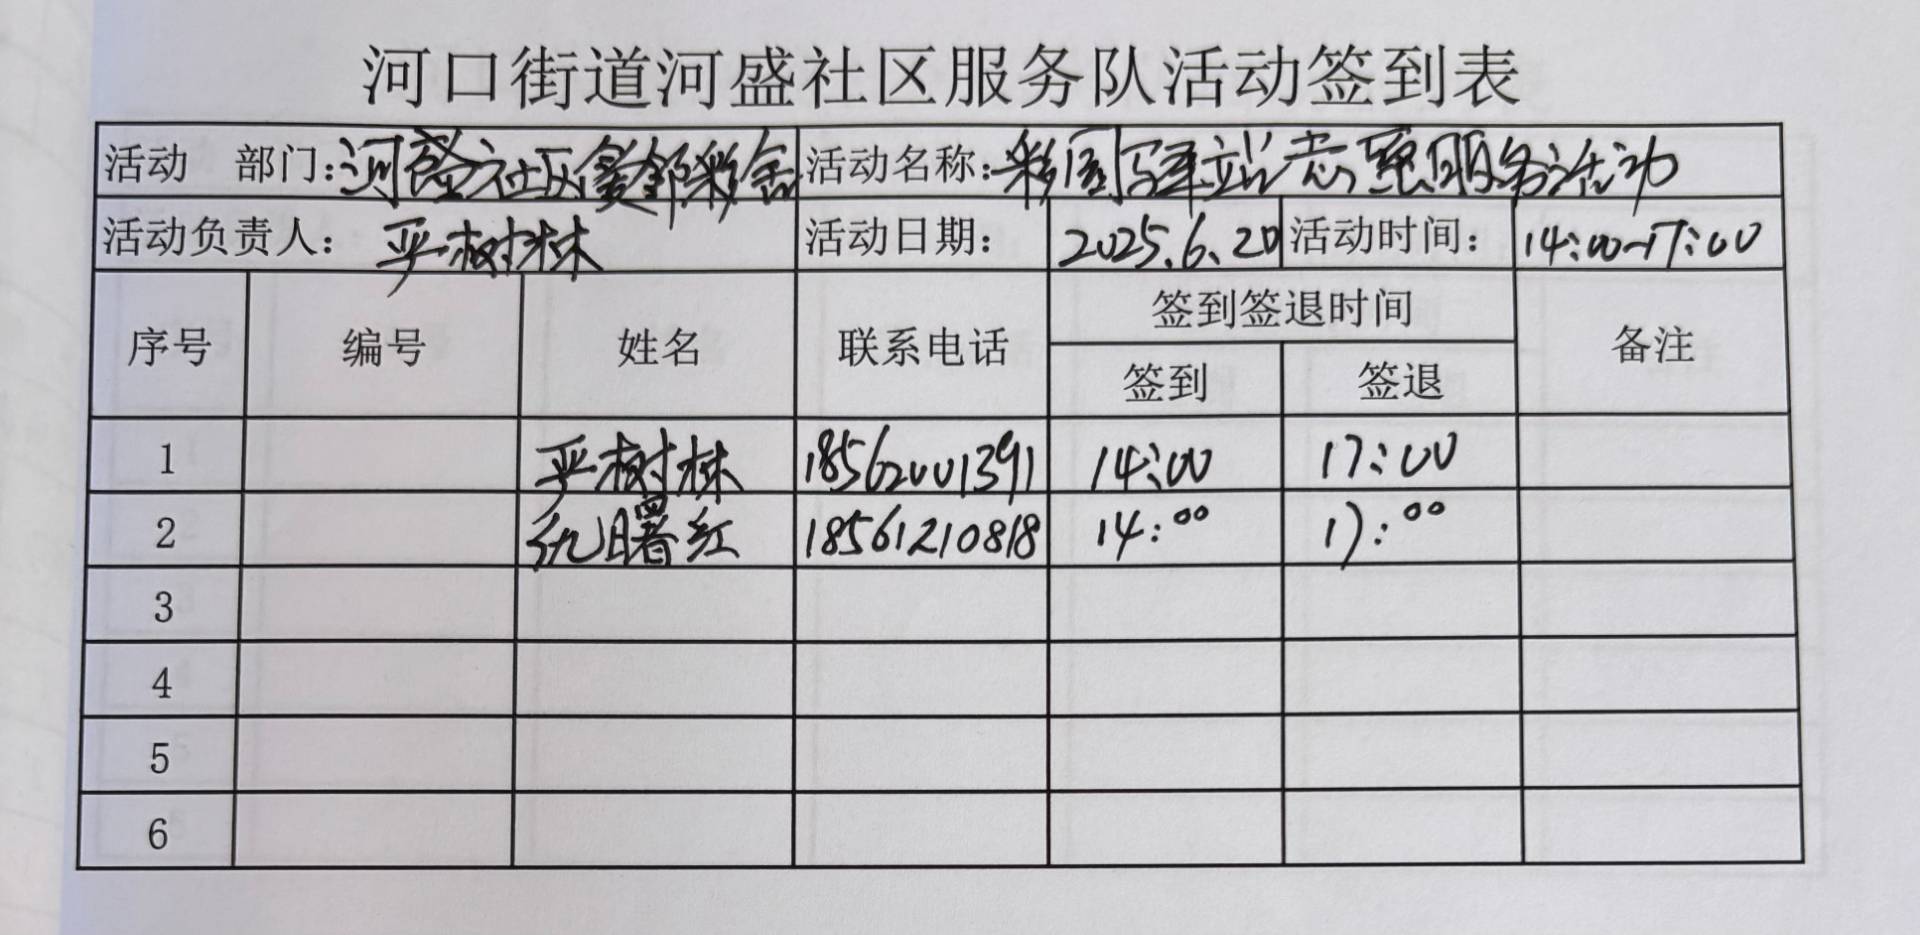 河口街道河盛社区服务队活动签到表
活动 部门:河盛社区鑫邻彩 活动名称:彩周驿站志愿服务活动
活动负责人: 平树林 活动日期: 2025.6.20 活动时间: 14:00-17:00
签到签退时间
序号 编号 姓名 联系电话 签到 签退 备注
1 平树林 18562001391 14:00 17:00
2 仉曙红 18561210818 14:00 17:00
3
4
5
6